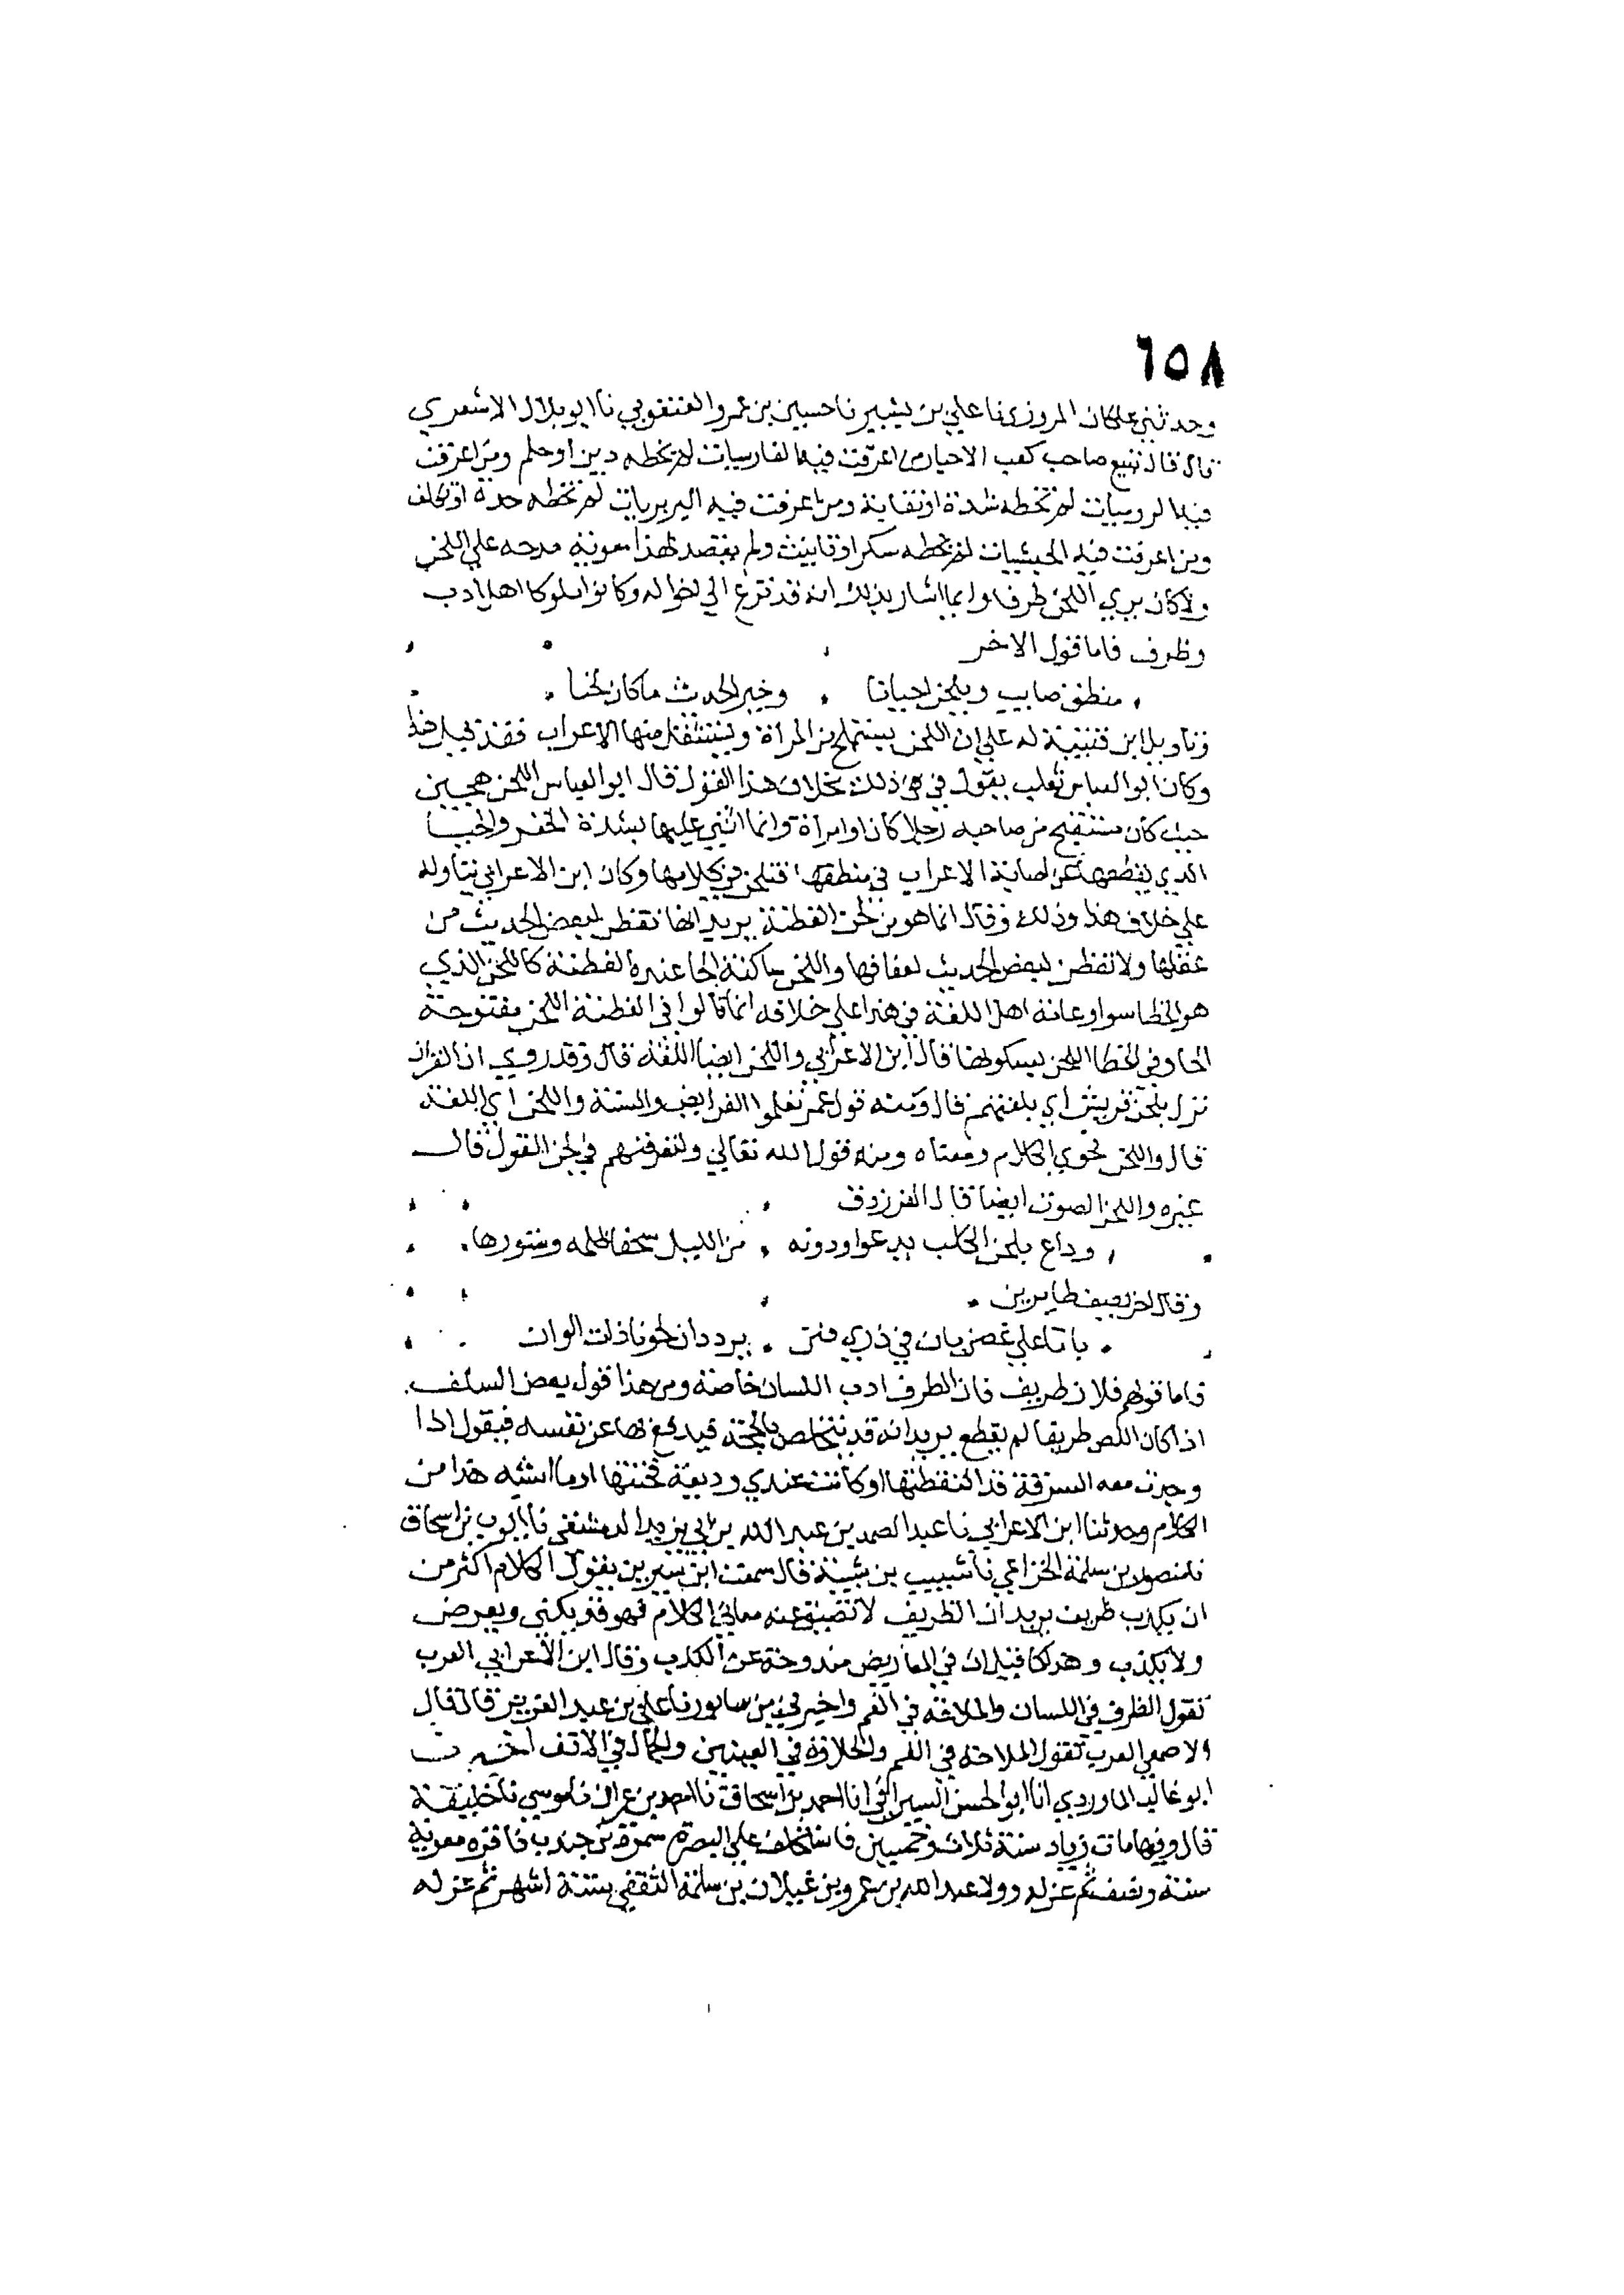 ٦٥٨
وحدثني علكان المروزي نا علي بن بشير نا حسين بن عمرو العنقوبي نا ابو بلال الاشعري
قال قال تبيع صاحب كعب الاحبار من اعرقت فيه الفارسيات لم تخطه دين او حلم ومن اعرقت
فيه الروميات لم تخطه شدة او نقابة ومن اعرقت فيه البربريات لم تخطه حدة او تكلف
ومن اعرقت فيه الحبشيات لم تخطه سكر او تانيث ولم يقصد بهذا معوية مدحه على اللحن
ولا كان يرى اللحن ظرفا وانما اشار بذلك انه قد نزع الي اخواله وكانوا ملوكا اهل ادب
وظرف فاما قول الاخر
منطق صايب وتلحن احيانا وخير الحديث ما كان لحنا
وتاويل ابن قتيبة له علي ان اللحن يستملح من المراة ويستثقل منها الاعراب فقد قيل هذا
وكان ابو العباس ثعلب يقول في ذلك بخلاف هذا القول قال ابو العباس اللحن هجين
حيث كان مستقبح من صاحبه رجلا كان او امراة وانما اثني عليها بشدة الخفر والحيا
الذي يقطعها عن اصابة الاعراب في منطقها فتلحن في كلامها وكان ابن الاعرابي يتاوله
علي خلاف هذا وذلك وقال انما هو من لحن الفطنة يريد انها تفطن لبعض الحديث من
عقلها ولا تفطن لبعض الحديث لعفافها واللحن ساكنة الحا عنده الفطنة كاللحن الذي
هو الخطا سوا وعامة اهل اللغة في هذا علي خلافه انما قالوا في الفطنة اللحن مفتوحة
الحا وفي الخطا اللحن بسكونها قال ابن الاعرابي واللحن ايضا اللغة قال وقد روي ان القران
نزل بلحن قريش اي بلغتهم قال ومنه قول عمر تعلموا الفرايض والسنة واللحن اي اللغة
قال واللحن نحوي الكلام ومعناه ومنه قول الله تعالي ولتعرفنهم في لحن القول قال
غيره واللحن الصوت ايضا قال الفرزدق
وداع بلحن الكلب يدعوا ودونه من الليل سجفا ظلمه وستورها
وقال اخر يصف طايرين
باتا علي غصن بان في ذري فنن يرددان لحونا ذات الوان
فاما قولهم فلان ظريف فان الظرف ادب اللسان خاصة ومن هذا قول بعض السلف
اذا كان اللص ظريفا لم يقطع يريد انه قد يتخلص بالحجة فيدفع بها عن نفسه فيقول اذا
وجدت معه السرقة قد التقطتها او كانت عندي وديعة فخنتها او ما اشبه هذا من
الكلام وحدثنا ابن الاعرابي نا عبد الصمد بن عبد الله بن ابي يزيد الدمشقي نا ايوب بن اسحاق
نا منصور بن سلمة الخزاعي نا شبيب بن شيبة قال سمعت ابن سيرين يقول الكلام اكثر من
ان يكذب ظريف يريد ان الظريف لا تضيق عنه معاني الكلام فهو قد يكني ويعرض
ولا يكذب وهذا كما قيل ان في المعاريض مندوحة عن الكذب وقال ابن الاعرابي العرب
تقول الظرف في اللسان والملاحة في الفم واخبرني بن سابور نا علي بن عبد العزيز قال قال
الاصمعي العرب تقول الملاحة في الفم والحلاوة في العينين والجمال في الانف اخبرنا
ابو غالب الماوردي انا ابو الحسن السيرافي انا احمد بن اسحاق نا احمد بن عمران نا موسي نا خليفة
قال وفيها مات زياد سنة ثلاث وخمسين فاستخلف علي البصرة سمرة بن جندب فاقره معوية
سنة ونصف ثم عزله وولا عبد الله بن عمرو بن غيلان بن سلمة الثقفي ستة اشهر ثم عزله